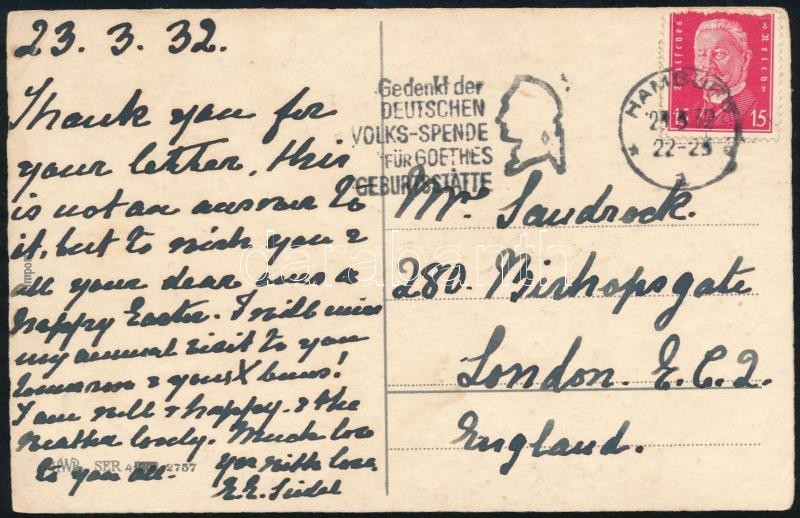 23. 3. 32.
Thank you for
your letter, this
is not an answer to
it, but to wish you &
all your dear ones a
happy Easter. I will miss
my annual visit to you
tomorrow & your X buns!
I am well & happy. & the
weather lovely. Much love
to you all.
Yrs with love.
E.E. Seidel
SER 2757
Gedenkt der
DEUTSCHEN
VOLKS-SPENDE
FÜR GOETHES
GEBURTSSTÄTTE
HAMBURG
22-23
1
Deutsches Reich
15 15
Mr. Sandrock.
280. Bishopsgate
London. E.C.2.
England.
darabanth